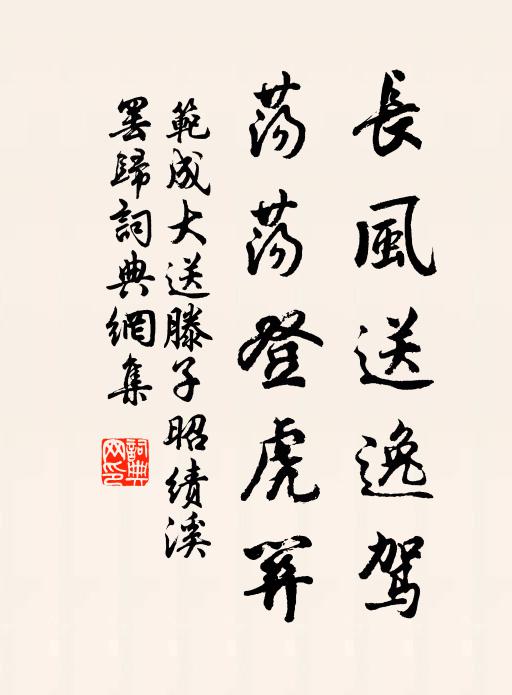 長風送逸駕
蕩蕩登虎關
範成大送滕子昭績溪
罷歸詞典網集
詞典
网印